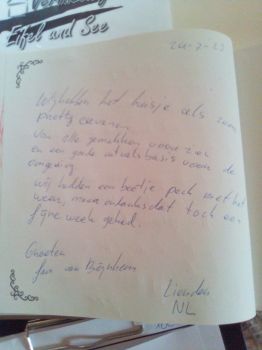 Eifel und See
Wij hebben het huisje als zeer
prettig ervaren.
Van alle gemakken voorzien
en een goede uitvalsbasis voor de
omgeving.
Wij hadden een beetje pech met het
weer, maar ondanks dat toch een
fijne week gehad.
Groeten
fam van
Lienden
NL